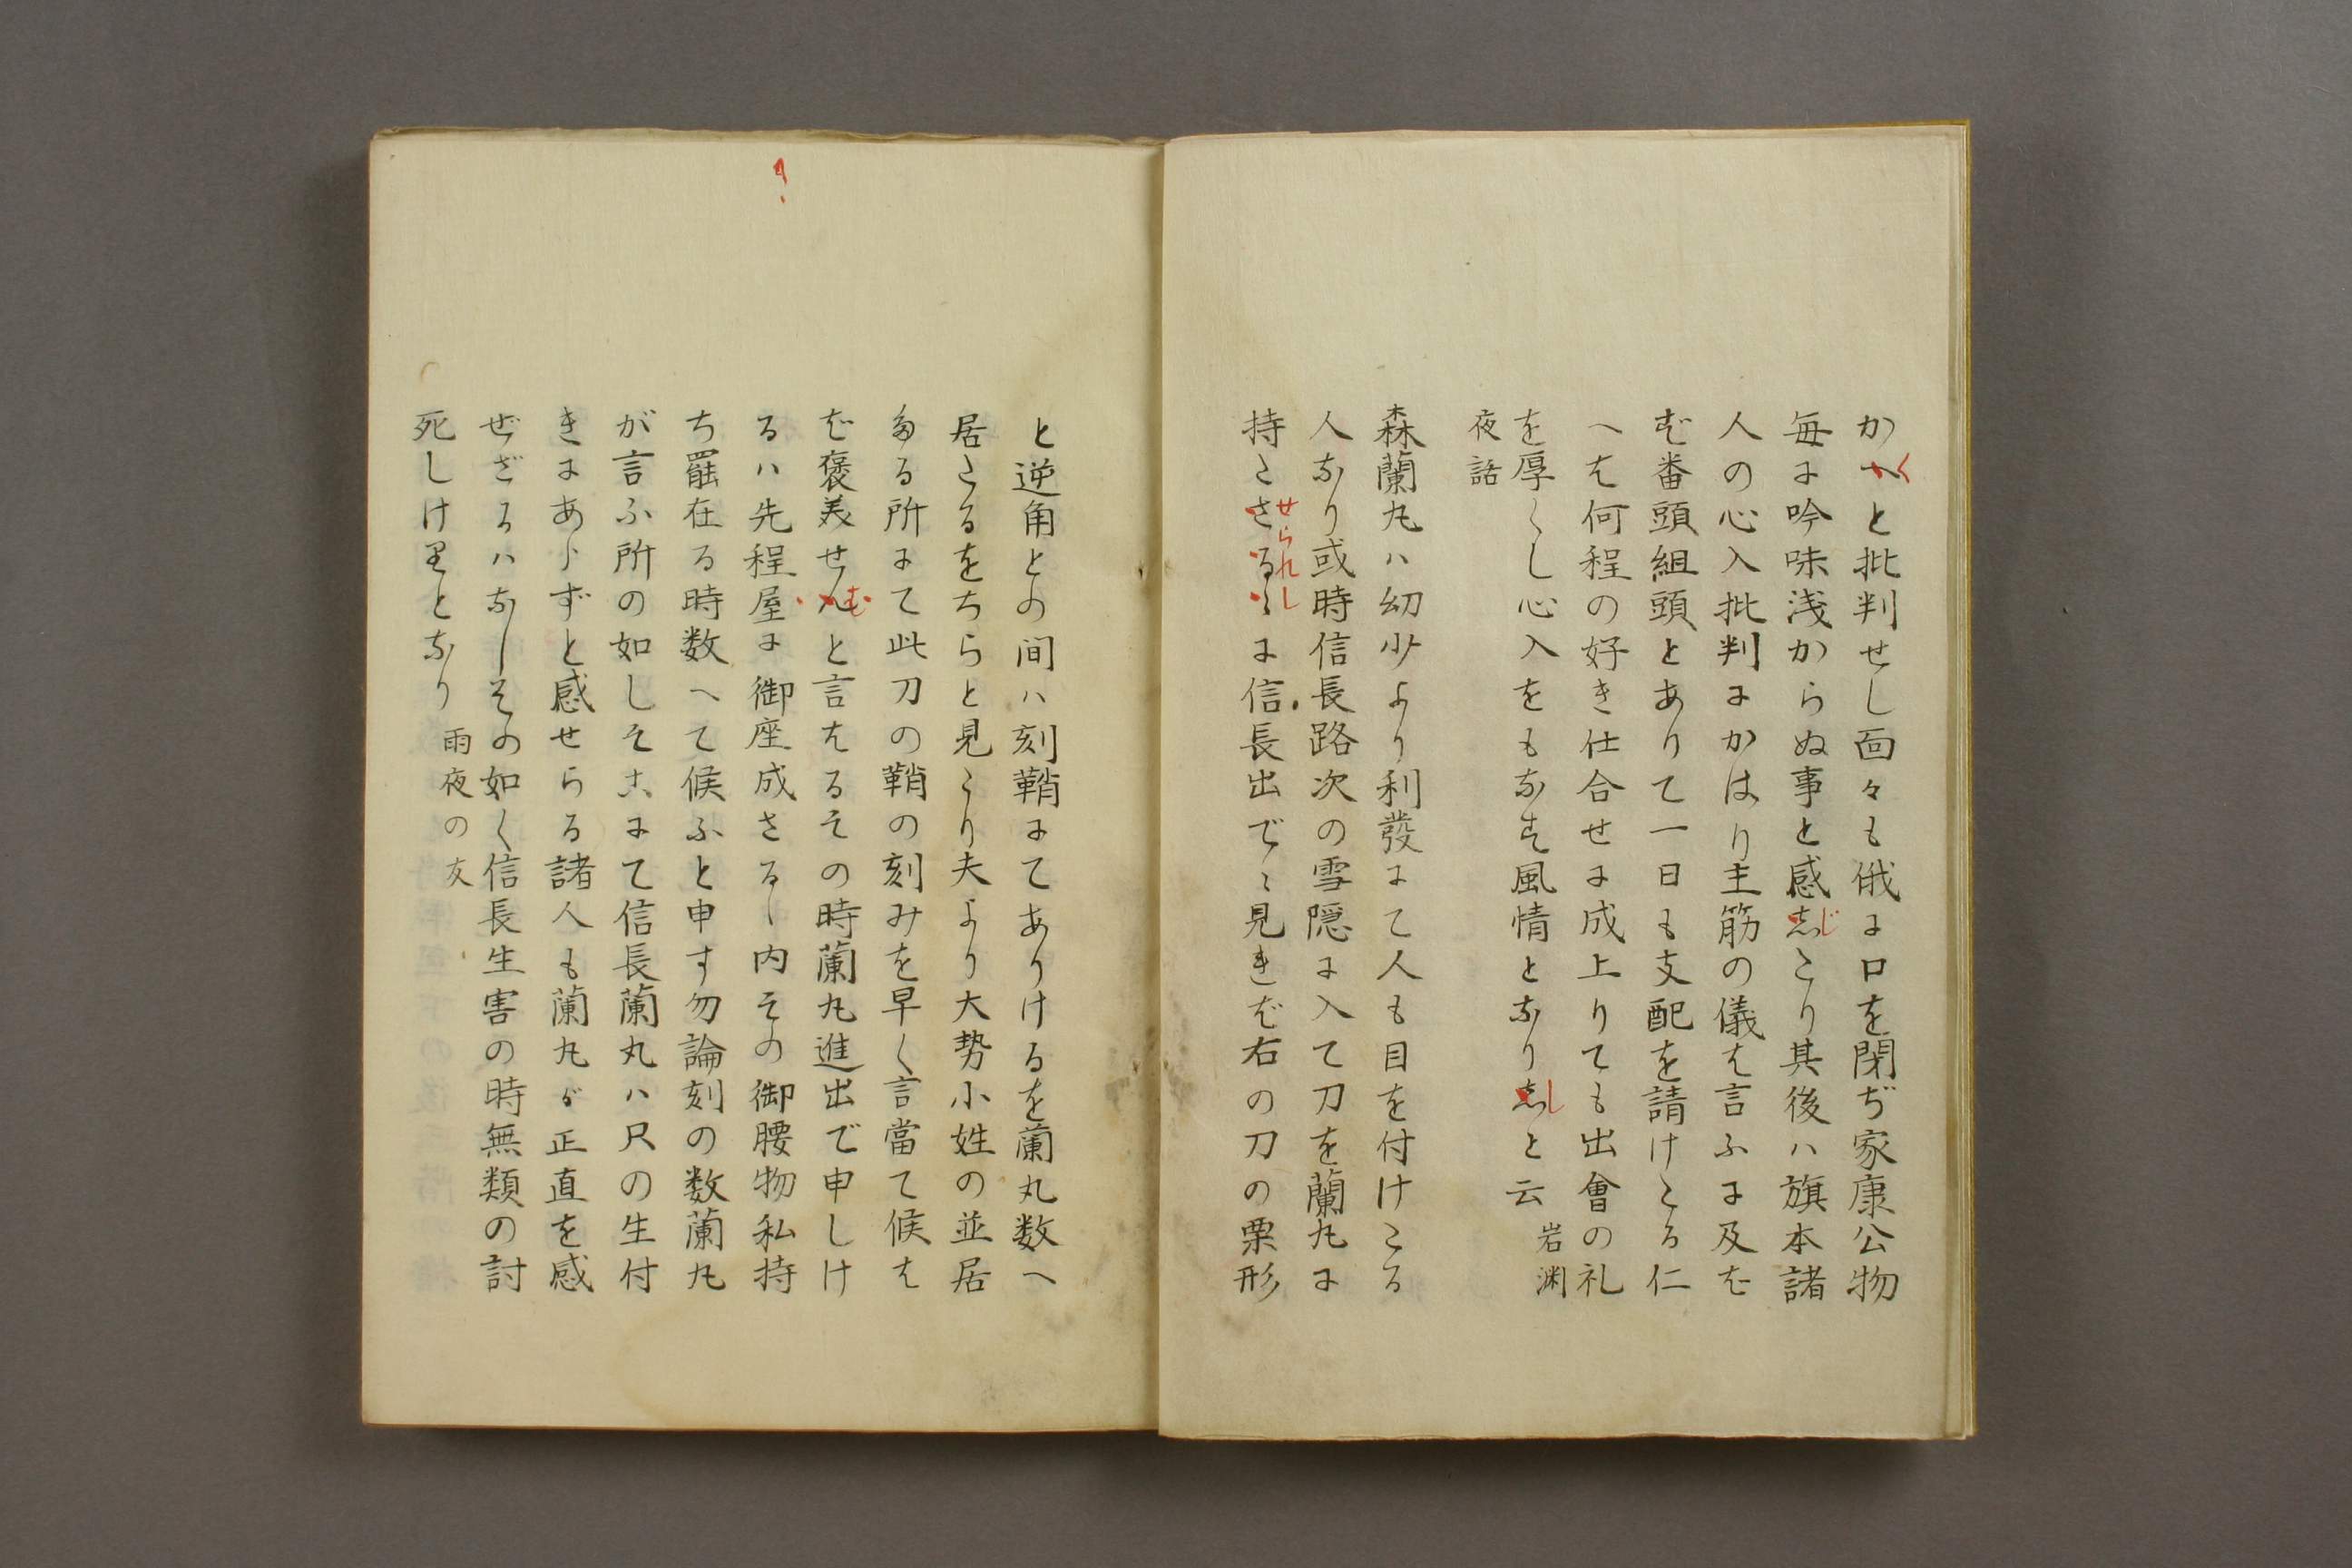 かへと批判せし面々も俄に口を閉ぢ家康公物
く
毎に吟味浅からぬ事と感志たり其後ハ旗本諸
じ
人の心入批判にかはり主筋の儀は言ふに及ば
ず番頭組頭とありて一日も支配を請けたる仁
へは何程の好き仕合せに成上りても出會の礼
を厚くし心入をもなす風情となり志と云 岩渕
し
夜話
森蘭丸ハ幼少より利發にて人も目を付けたる
人なり或時信長路次の雪隠に入て刀を蘭丸に
持たさるゝに信長出でゝ見れば右の刀の栗形
せられし
と逆角との間ハ刻鞘にてありけるを蘭丸数へ
居たるをちらと見たり夫より大勢小姓の並居
たる所にて此刀の鞘の刻みを早く言當て候は
ば褒美せんと言はるその時蘭丸進出で申しけ
む
るハ先程屋に御座成さるゝ内その御腰物私持
ち罷在る時数へて候ふと申す勿論刻の数蘭丸
が言ふ所の如しそこにて信長蘭丸ハ尺の生付
きにあらずと感せらる諸人も蘭丸が正直を感
ぜざるハなしその如く信長生害の時無類の討
死しけりとなり 雨夜の友